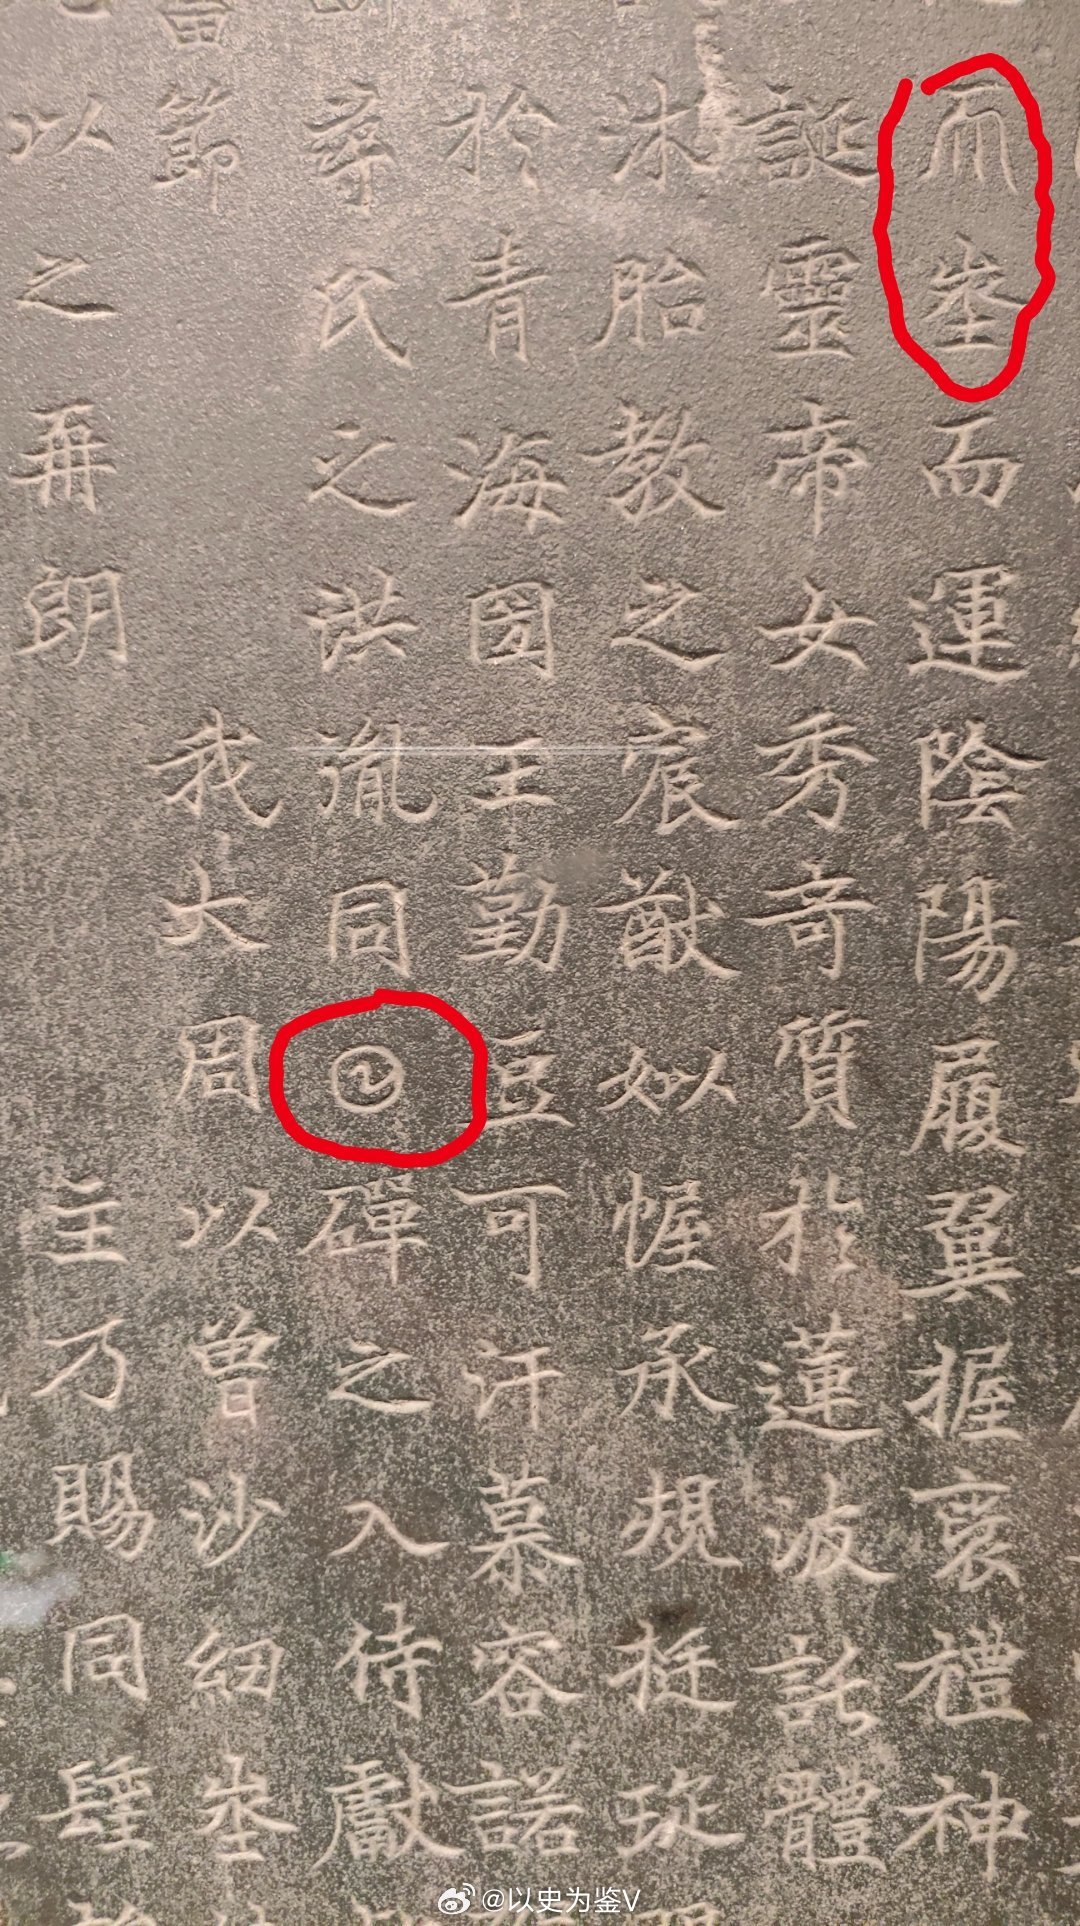 𠀑埊而運陰陽履翼握裒禮神
誕靈帝女秀奇質於蓮波託體
沐胎教之宸猷姒幄承規挺琁
於青海圀王勤豆可汗慕容諾
尋氏之洪胤同𡆠磾之入侍獻
節 我大周以曾沙紐埊
以之再朗 主乃賜同壁
@以史为鉴V